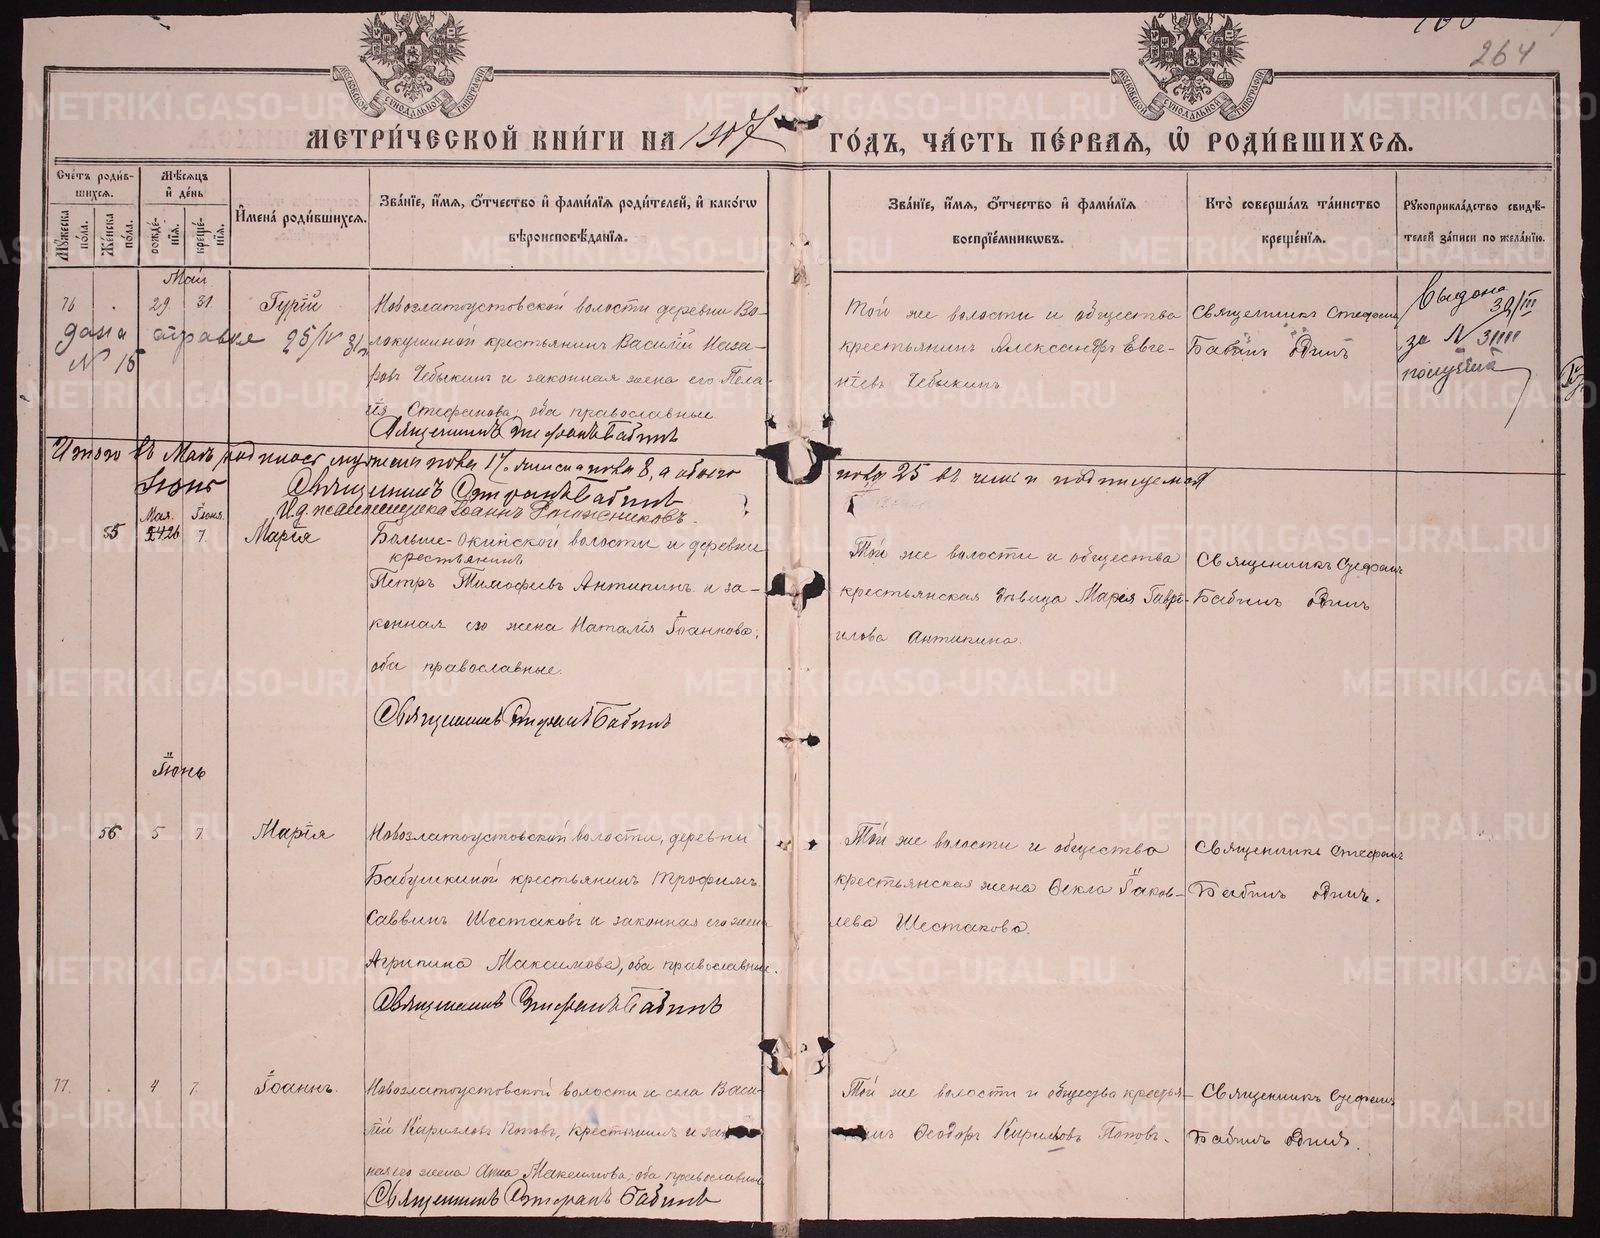 264
МОСКОВСКОЙ СѴНОДАЛЬНОЙ ТИПОГРАФІИ
МОСКОВСКОЙ СѴНОДАЛЬНОЙ ТИПОГРАФІИ
МЕТРИ́ЧЕСКОЙ КНИ́ГИ НА 1907 ГО́ДЪ, ЧА́СТЬ ПЕ́РВАѦ, Ѡ҆ РОДИ́ВШИХСѦ.
Сче́тъ роди́в-
шихсѧ.
Мꙋ́жеска по́ла.
Же́нска по́ла.
Мѣ́сѧцъ и҆ де́нь
рожде́-нїѧ.
креще́-нїѧ.
И҆мена̀ роди́вшихсѧ.
Зва́нїе, и҆́мѧ, ѻ҆́тчество и҆ фами́лїѧ роди́телей, и҆ како́гѡ
вѣроисповѣ́данїѧ.
Зва́нїе, и҆́мѧ, ѻ҆́тчество и҆ фами́лїѧ
воспрїе́мникѡвъ.
Кто̀ соверша́лъ та́инство
креще́нїѧ.
Рꙋкоприкла́дство свидѣ́-
телей за́писи по жела́нїю.
Май
76 . 29 31. Гурій
Новозлатоустовской волости деревни Во-
локушиной крестьянинъ Василій Наза-
ровъ Чебыкинъ и законная жена его Пела-
гія Стефанова, оба православные
Священникъ Стефанъ Бабинъ
Той же волости и общества
крестьянинъ Александръ Евге-
ніевъ Чебыкинъ
Священникъ Стефанъ
Бабинъ
Выдана
за №
дана справка 25/IV
№ 15
Итого въ Маѣ родилось мужеска пола 17, женска пола 8, а обоего
пола 25 въ чемъ и подписуемся
Священникъ Стефанъ Бабинъ
И. д. псаломщика Іоаннъ
Іюнь
Мая. Іюня.
55 26 7 Марія
Больше-Окинской волости и деревни
крестьянинъ
Петръ Тимофеевъ Антипинъ и за-
конная его жена Наталія Іоаннова,
оба православные.
Священникъ Стефанъ Бабинъ
Той же волости и общества
крестьянская дѣвица Марія Гаврі-
илова Антипина.
Священникъ Стефанъ
Бабинъ
Іюнь
56 5 7. Марія
Новозлатоустовской волости, деревни
Бабушкиной крестьянинъ Трофимъ
Саввинъ Шестаковъ и законная его жена
Агрипина Максимова, оба православные.
Священникъ Стефанъ Бабинъ
Той же волости и общества
крестьянская жена Ѳекла Іаков-
лева Шестакова.
Священникъ Стефанъ
Бабинъ
77. . 4 7. Іоаннъ.
Новозлатоустовской волости и села Васи-
лій Кирилловъ Поповъ, крестьянинъ и закон-
ная его жена Анна Максимова, оба православные
Священникъ Стефанъ Бабинъ
Той же волости и общества крестья-
нинъ Ѳеодоръ Кириловъ Поповъ.
Священникъ Стефанъ
Бабинъ
METRIKI.GASO-URAL.RU